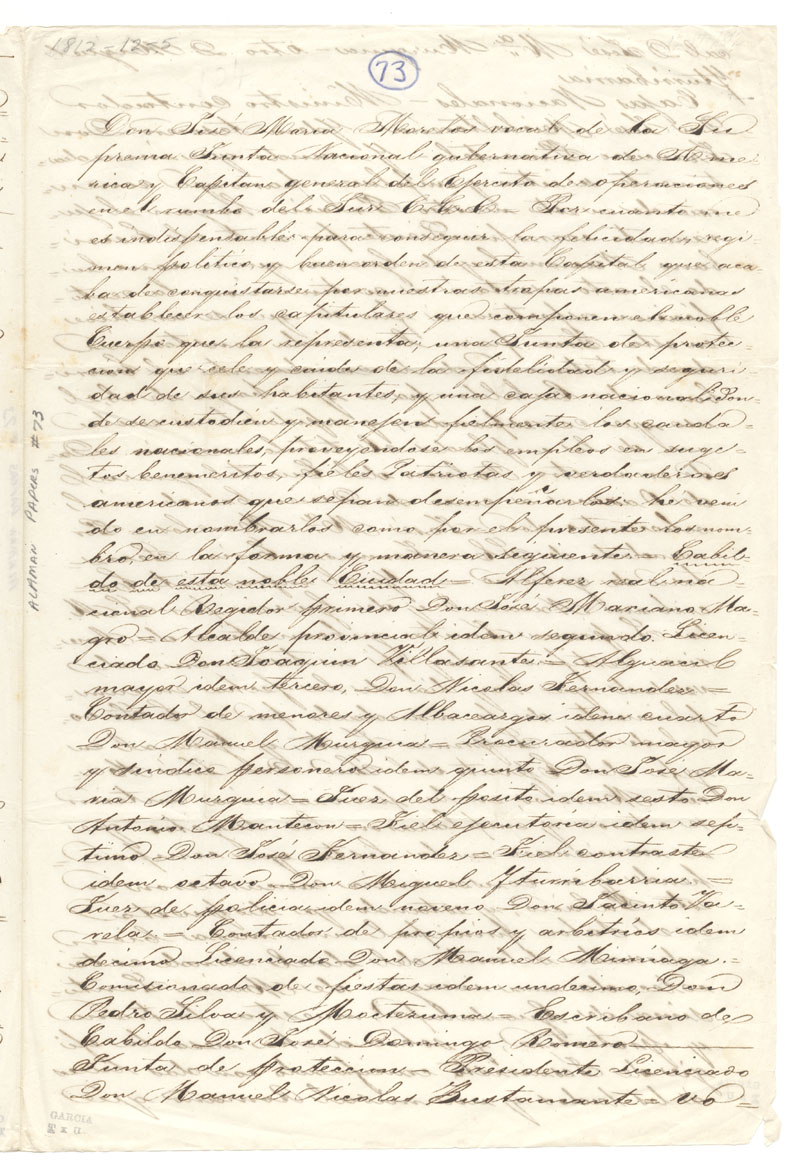 1812-1
73
Don José Maria Morelos vocal de la Su
prema Junta Nacional gubernativa de Ame-
rica y Capitan general del Ejercito de operaciones
en el rumbo del Sur &.&.& Por cuanto me
es indispensable para conseguir la felicidad, regi-
men politico y buen orden de esta Capital que aca-
ba de conquistarse por nuestras tropas americanas
establecer los capitulares que componen el noble
Cuerpo que la representa, una Junta de protec-
cion que cele y cuide de la fidelidad y seguri
dad de sus habitantes, y una caja nacional don-
de se custodien y manejen fielmente los cauda-
les nacionales, proveyendose los empleos en suge-
tos benemeritos, fieles Patriotas y verdaderos
americanos que sepan desempeñarlos he veni
do en nombrarlos como por el presente los nom-
bro, en la forma y manera siguiente = Cabil-
do de esta noble Ciudad = Alferez real na-
cional Regidor primero Don José Mariano Ma-
gro = Alcalde provincial idem segundo Licen-
ciado Don Joaquin Villasante = Alguacil
mayor idem tercero, Don Nicolas Fernandez =
Contador de menores y Albaceasgos idem cuarto
Don Manuel Murguia = Procurador mayor
y sindico personero idem quinto Don José Ma-
ria Murguia = Juez del posito idem sesto Don
Antonio Mantecon = Fiel ejecutoria idem sep-
timo Don José Fernandez = Fiel contraste
idem octavo Don Miguel Yturribarria =
Juez de policia idem noveno Don Jacinto Va-
rela = Contador de propios y arbitrios idem
decimo Licenciado Don Manuel Miniaga =
Comisionado de fiestas idem undecimo, Don
Pedro Silva y Moctezuma = Escribano de
Cabildo Don José Domingo Romero
Junta de proteccion = Presidente Licenciado
Don Manuel Nicolas Bustamante = vo=
ALAMAN PAPERS #73
GARCIA